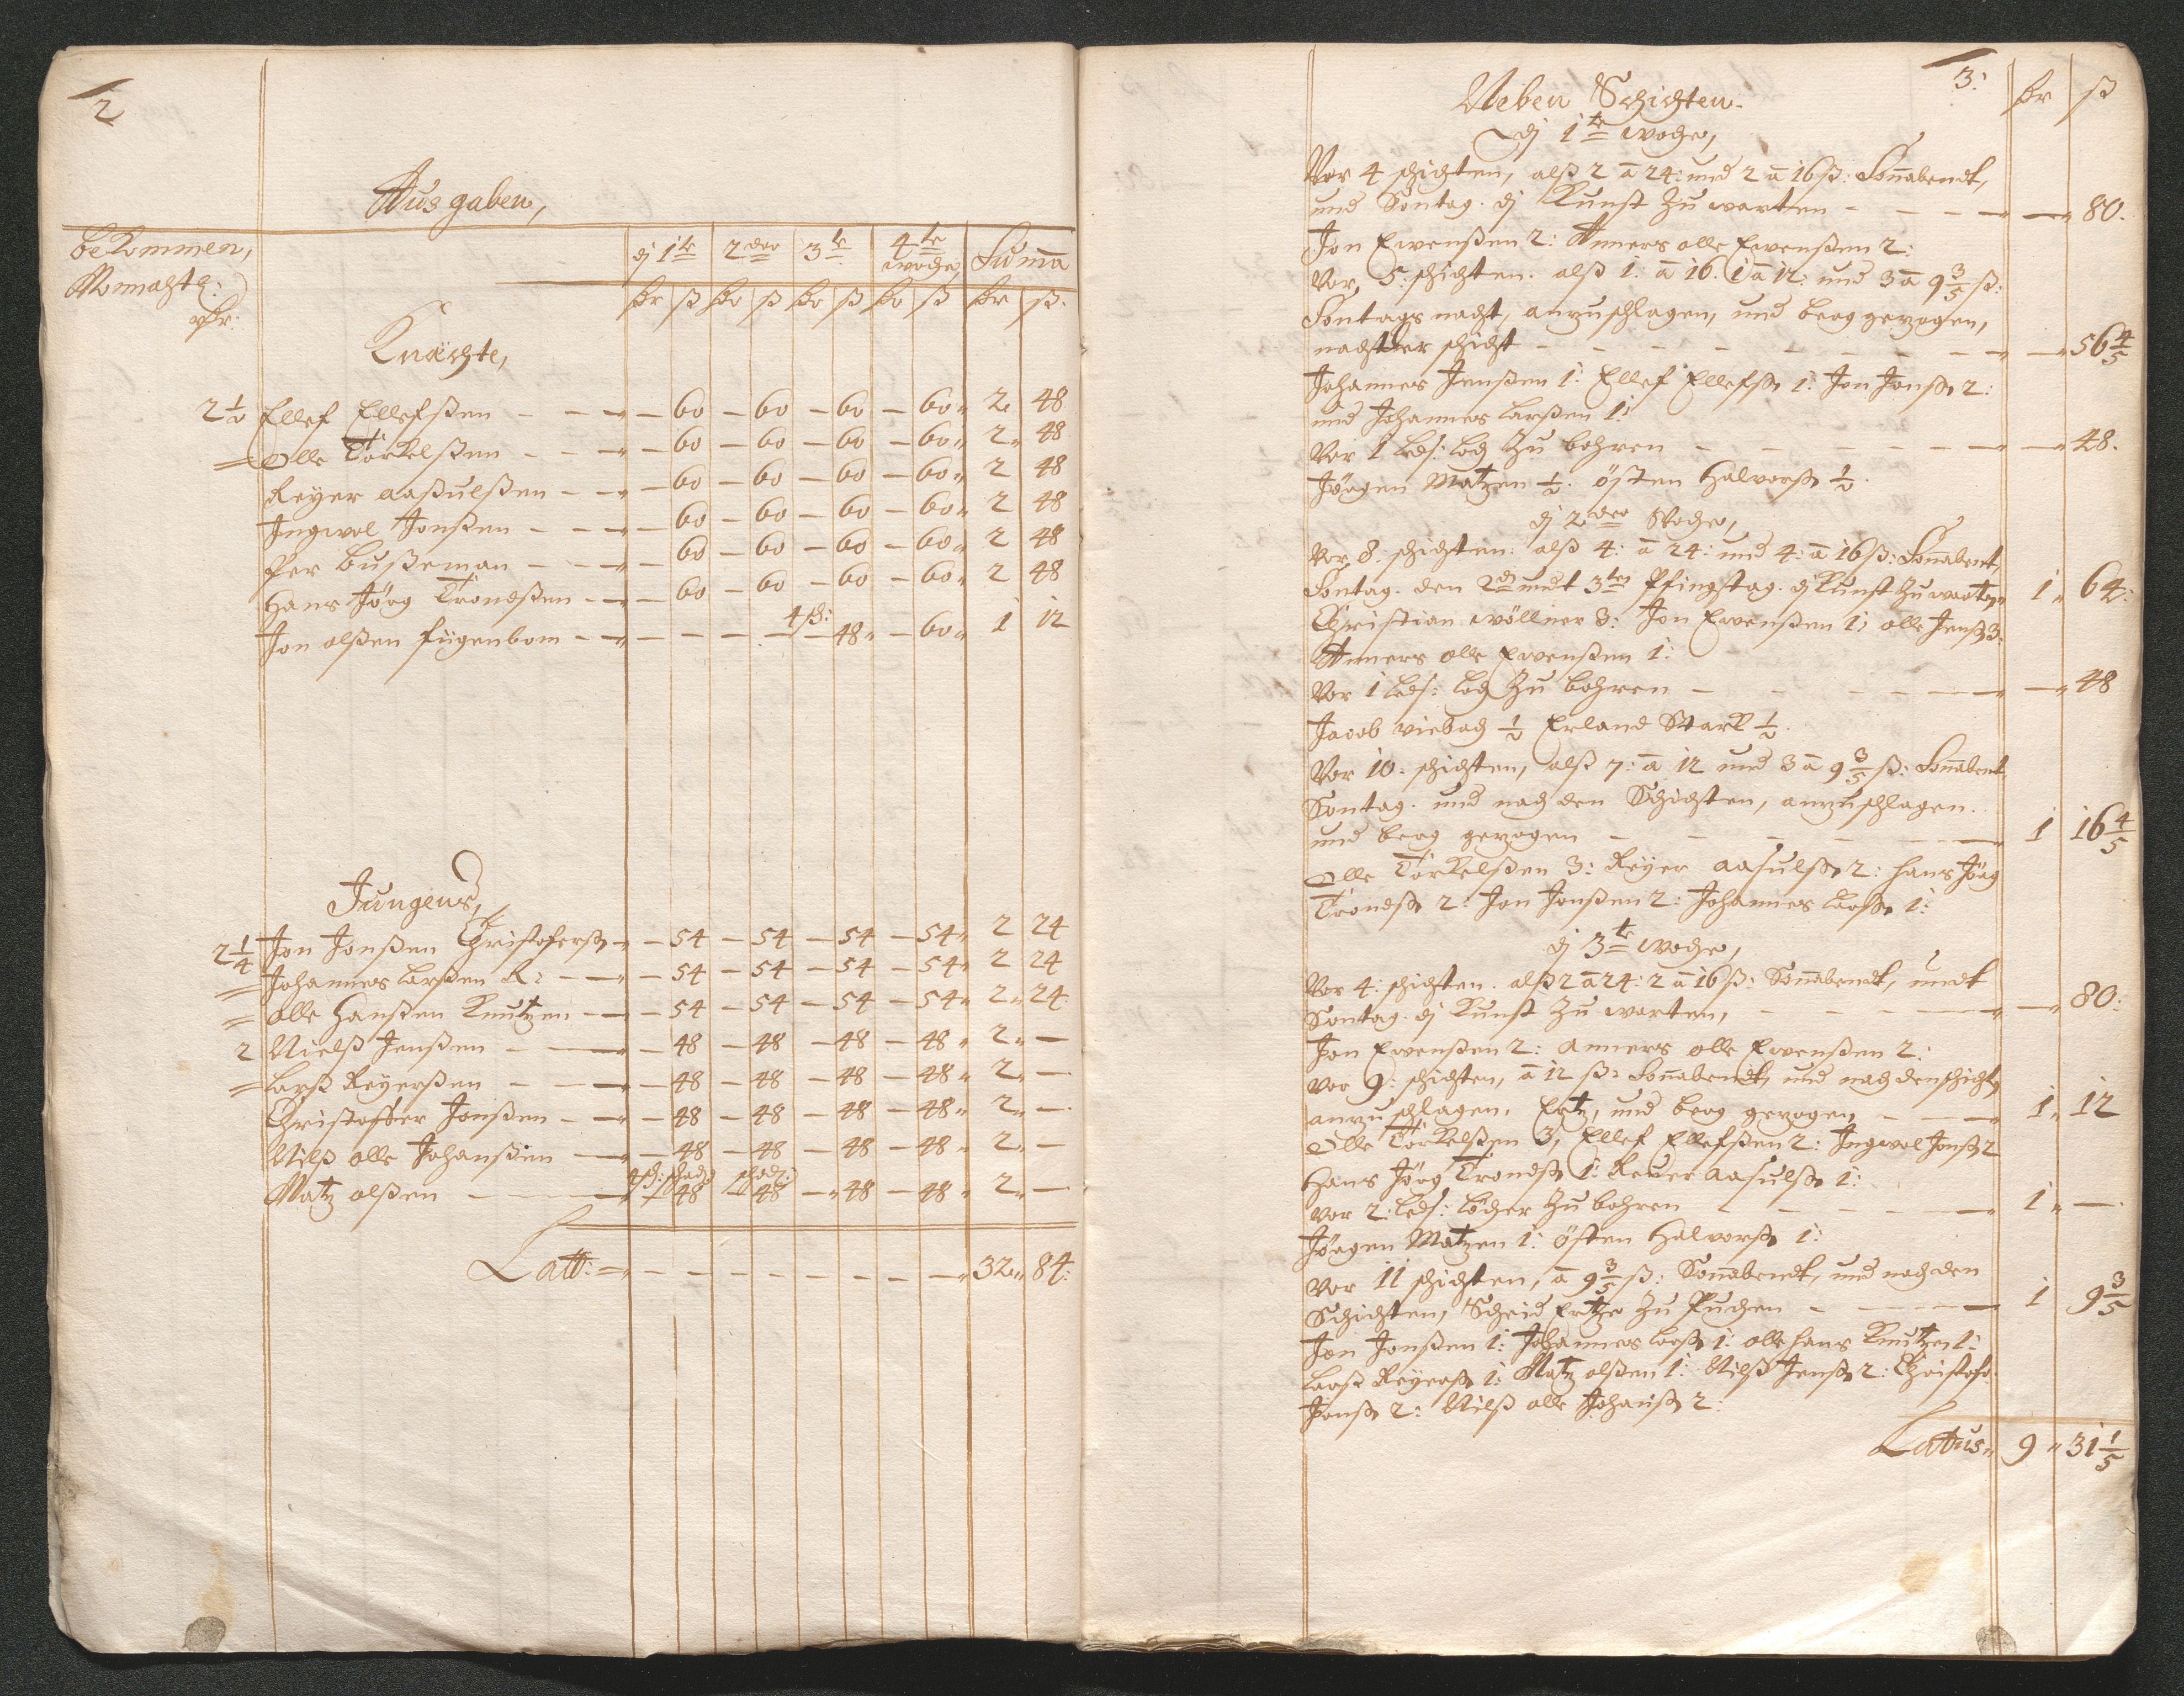 2
Ausgaben,
bekommen,
Monnahtl:
rhr:
dj 1te 2der 3te 4te woche Suma
hr ß hr ß hr ß hr ß hr ß
Knächte,
2 1/2 Ellef Ellefßen - - - 60 - 60 - 60 - 60 " 2 " 48
= Olle Törkelßen - - - 60 - 60 - 60 - 60 " 2 " 48
Reÿer aaßulßen - - - 60 - 60 - 60 - 60 " 2 48
Ingwol Jonßen - - - 60 - 60 - 60 - 60 " 2 48
Per bußeman - - - 60 - 60 - 60 - 60 " 2 48
Hans Jörg Trondßen - - - 60 - 60 - 60 - 60 " 2 48
Jon olßen fügenbom - - - - - 4 ß: 48 " - 60 " 1 12
Jungens,
2 1/4 Jon Jonßen Christoferß - - 54 - 54 - 54 - 54 " 2 24
= Johannes larßen R: - - 54 - 54 - 54 - 54 " 2 24
= Olle Hanßen Knutzen - - 54 - 54 - 54 - 54 " 2 " 24
2 Nielß Jenßen - - 48 - 48 - 48 - 48 " 2 " -
= larß Reÿerßen - - 48 - 48 - 48 - 48 " 2 " -
Christoffer Jonßen - - 48 - 48 - 48 - 48 " 2 " -
Nilß olle Johanßen - - 48 - 48 - 48 - 48 " 2 " -
Matz olßen - - 48 - 48 - 48 - 48 " 2 " -
Latt: = - - - - - - - - 32 " 84:
3:
hr ß
Neben Schichten.
dj 1te woche,
Vor 4 schichten, alß 2 a 24: und 2 a 16 ß: Sonabendt,
und Sontag. dj Kunst zu warten - - - - 80.
Jon Ewenßen 2: Anners olle Ewenßen 2:
Vor 5: schichten. alß 1: a 16. 1 a 12: und 3 a 9 3/5 ß:
Sontags nacht, anzuschlagen, und berg gezogen,
nacht der schicht - - - - - - 56 4/5
Johannes Jenßen 1: Ellef Ellefß 1: Jon Jonß 2:
und Johannes larßen 1:
Vor 1 leds: loch zu bohren - - - - 48.
Jörgen Matzen 1/2. östen Halvorß 1/2.
dj 2der Woche,
Vor 8: schichten: alß 4: a 24: und 4: a 16 ß: Sonabent,
Sontag. den 2ds undt 3tes Pfingstag. dj Kunst zu warten " 1 " 64:
Christian wöllner 3: Jon Ewenßen 1: olle Jenß 3:
Anners olle Ewenßen 1:
Vor 1 leds: loch zu bohren - - - - 48
Jacob viebach 1/2 Erland Stark 1/2.
Vor 10: schichten, alß 7: a 12 und 3 a 9 3/5 ß: Sonabent,
Sontag. und nach den Schichten, anzuschlagen.
und berg gezogen - - - - 1 16 4/5
Olle Törkelßen 3: Reÿer aasulß 2: hans Jörg
Trondß 2: Jon Jonßen 2: Johannes larß 1:
dj 3te woche,
Vor 4: schichten. alß 2 a 24: 2 a 16 ß: Sonabendt, undt
Sontag. dj Kunst zu warten, - - - - 80:
Jon Ewenßen 2: anners olle Ewenßen 2:
Vor 9: schichten, a 12 ß: Sonabendt, und nach den schicht,
anzuschlagen. Ertz, und berg gezogen - - - 1 " 12
Olle Törkelßen 3, Ellef Ellefßen 2: Ingwol Jonß 2
Hans Jörg Trondß 1: Reyer aasulß 1:
Vor 2: leds: löcher zu bohren - - - - 1 " -
Jörgen Matzen 1: östen Halvorß 1:
Vor 11 schichten, a 9 3/5 ß: Sonabendt, und nach den
Schichten, Scheid Ertze zu Puchen - - - 1 9 3/5
Jon Jonßen 1: Johannes larß 1: olle hans Knutzen 1:
larß Reÿerß 1: Matz olßen 1: Nilß Jenß 2: Christofr
Jonß 2: Nilß olle Johanß 2:
Lattus " 9 " 31 1/5